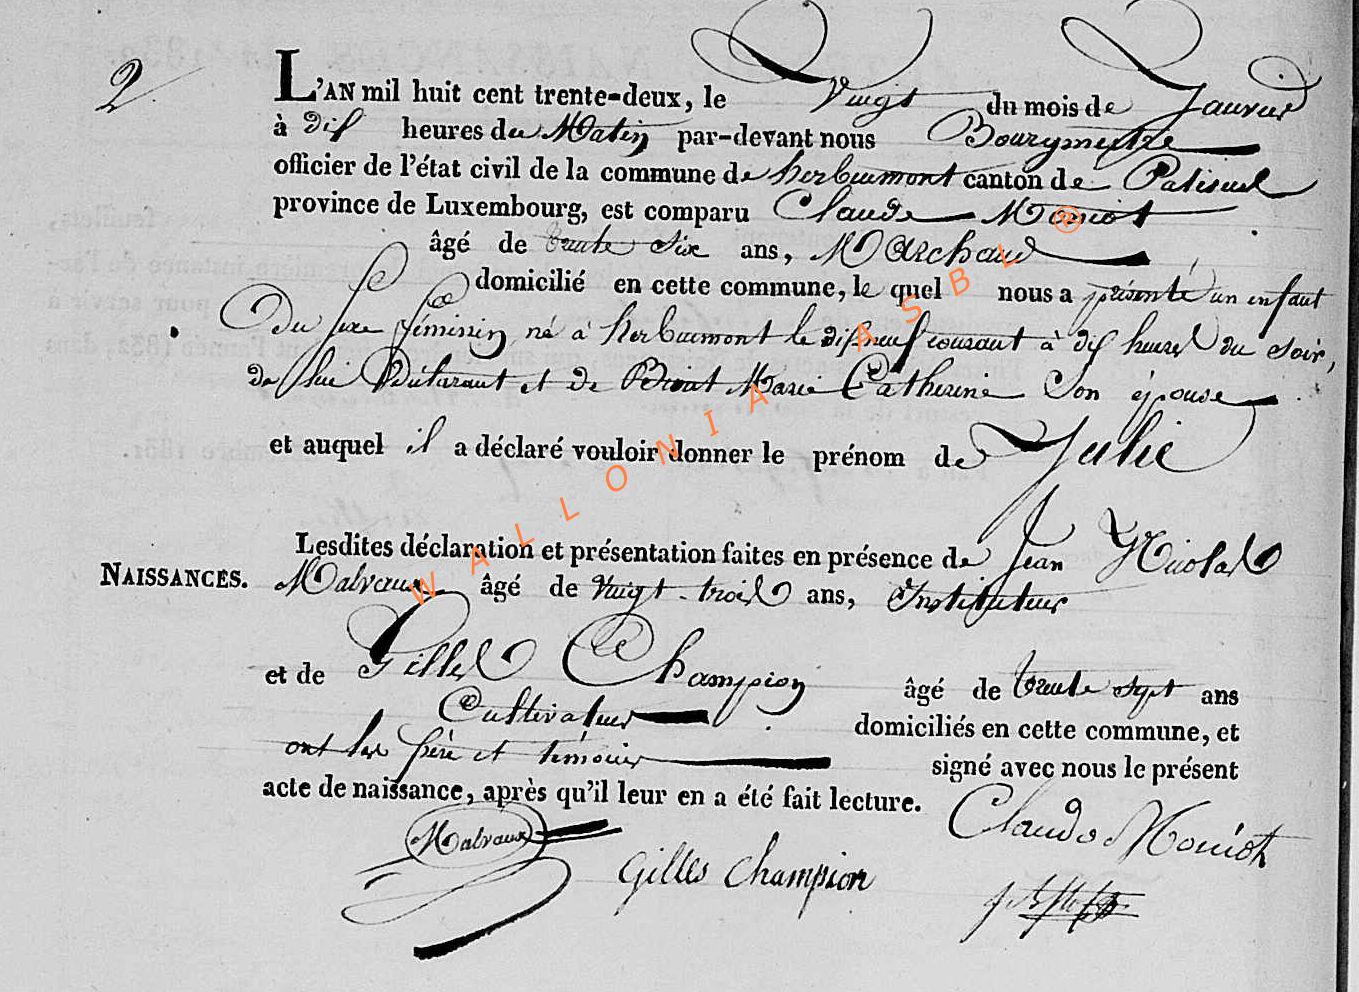 2
L'AN mil huit cent trente-deux, le Vingt du mois de Janvier
à dix heures du Matin par-devant nous Bourgmestre
officier de l'état civil de la commune de herbeumont canton de Paliseul
province de Luxembourg, est comparu Claude Moniot
âgé de trente six ans, Marchand
domicilié en cette commune, le quel nous a présenté un enfant
Du sexe féminin né à herbeumont le dixneuf courant à dix heures du soir,
de lui Déclarant et de Marie Catherine Son épouse
et auquel il a déclaré vouloir donner le prénom de Julie
Lesdites déclaration et présentation faites en présence de Jean Nicolas
NAISSANCES. Malvaux âgé de vingt-trois ans, Instituteur
et de Gilles Champion âgé de trente sept ans
Cultivateur domiciliés en cette commune, et
ont les père et témoins signé avec nous le présent
acte de naissance, après qu'il leur en a été fait lecture.
Claude Moniot
Malvaux
Gilles Champion
WALLONIA ASBL ®